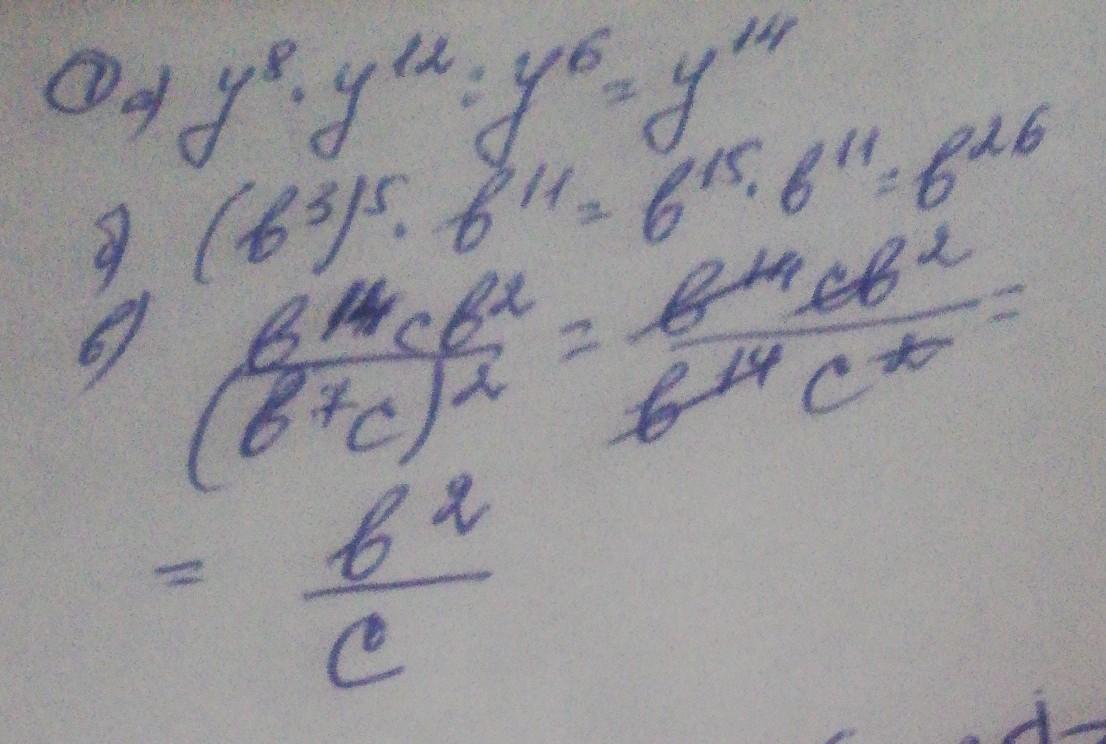 ① а) y⁸ · y¹² : y⁶ = y¹⁴
б) (b³)⁵ · b¹¹ = b¹⁵ · b¹¹ = b²⁶
в) b¹⁴cb² / (b⁷c)² = b¹⁴cb² / b¹⁴c² =
= b² / c